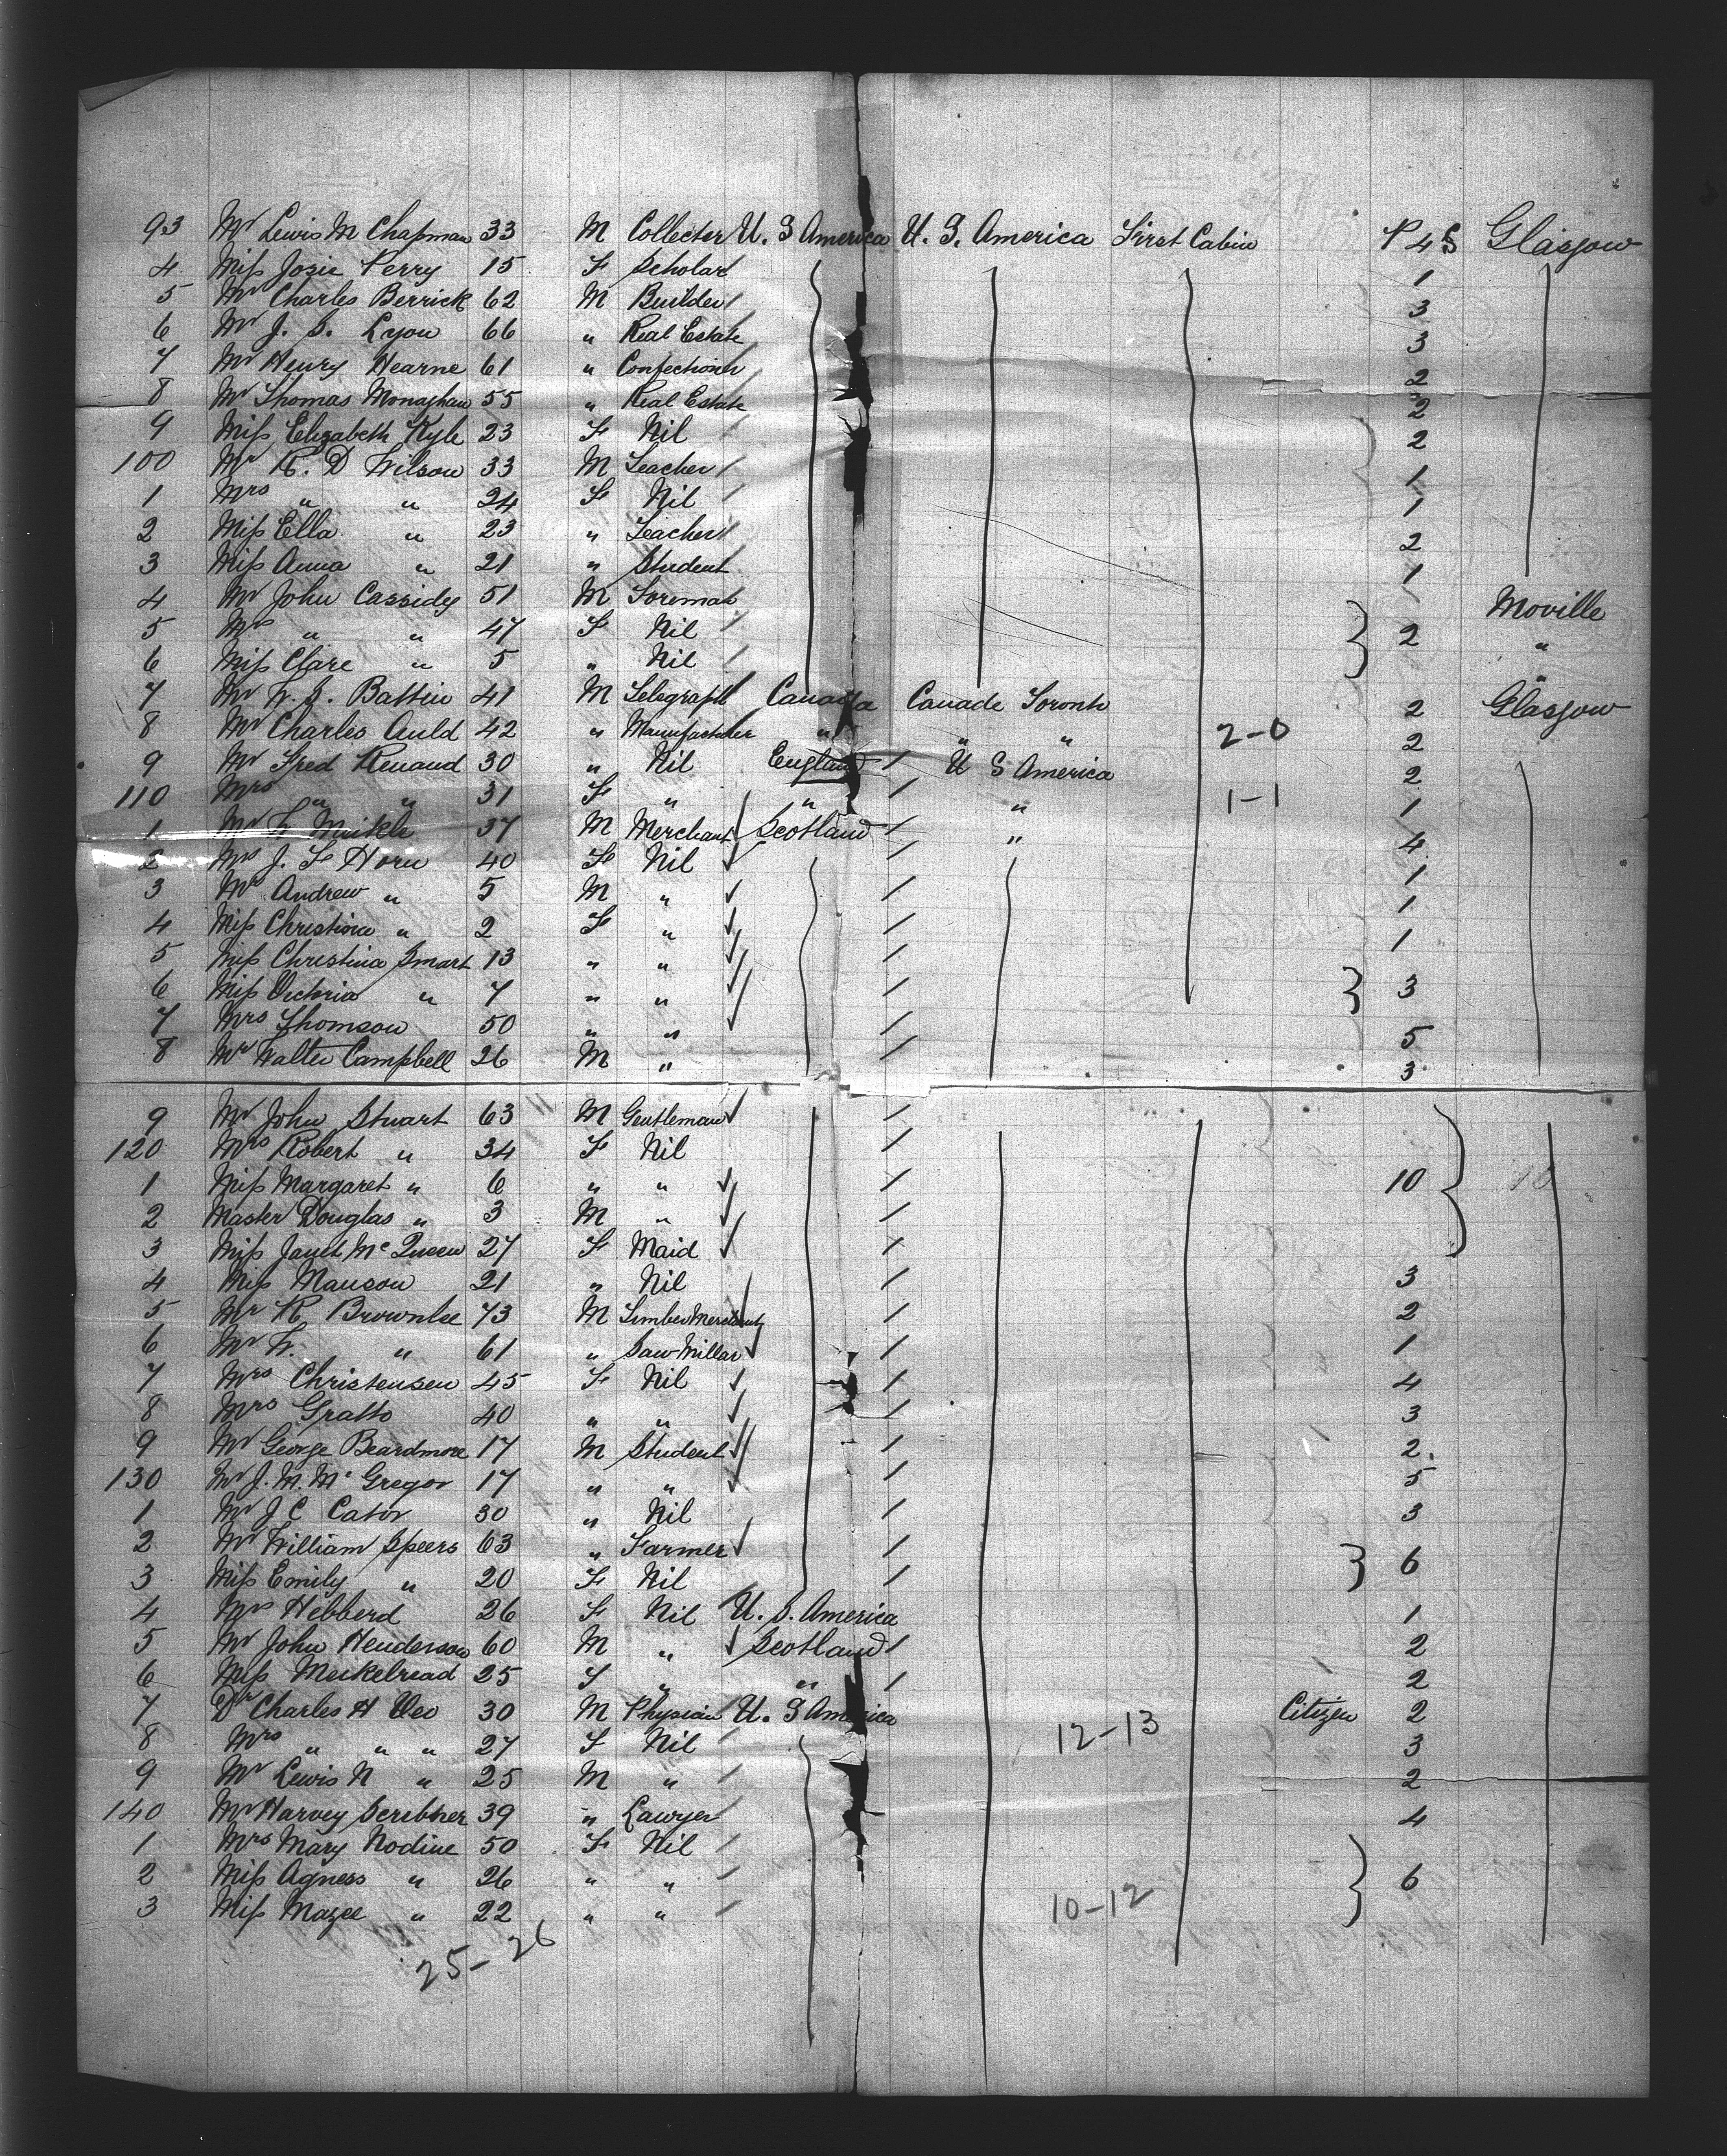 93 Mr Lewis M Chapman 33 M Collecter U. S America U. S. America First Cabin P 4 S Glasgow
4 Miss Josie Perry 15 F Scholar 1
5 Mr Charles Berrick 62 M Builder 3
6 Mr J. S. Lyon 66 " Real Estate 3
7 Mr Henry Hearne 61 " Confectionr 2
8 Mr Thomas Monaghan 55 " Real Estate 2
9 Miss Elizabeth Kyle 23 F Nil 2
100 Mr R. D Wilson 33 M Teacher 1
1 Mrs " " 24 F Nil 1
2 Miss Ella " 23 " Teacher 2
3 Miss Anna " 21 " Student 1
4 Mr John Cassidy 51 M Foreman Moville
5 Mrs " " 47 F Nil 2 "
6 Miss Clare " 5 " Nil "
7 Mr W. S. Battin 41 M Telegraph Canada Canade Toronto 2 Glasgow
8 Mr Charles Auld 42 " Manufacturer " " " 2-0 2
9 Mr Fred Renaud 30 " Nil England U S America 2
110 Mrs " " 31 F " " " 1-1 1
1 Mr W Meikle 37 M Merchant Scotland " 4
2 Mrs J. F Horn 40 F Nil 1
3 Mr Andrew " 5 M " 1
4 Miss Christina " 2 F " 1
5 Miss Christina Smart 13 " "
6 Miss Victoria " 7 " " 3
7 Mrs Thomson 50 " " 5
8 Mr Walter Campbell 26 M " 3
9 Mr John Stuart 63 M Gentleman
120 Mrs Robert " 34 F Nil
1 Miss Margaret " 6 " " 10 10
2 Master Douglas " 3 M "
3 Miss Janet McQueen 27 F Maid
4 Miss Manson 21 " Nil 3
5 Mr R. Brownlee 73 M Timber Merchant 2
6 Mr W. " 61 " Saw Millar 1
7 Mrs Christensen 45 F Nil 4
8 Mrs Gratto 40 " " 3
9 Mr George Beardmore 17 M Student 2
130 Mr J. M. McGregor 17 " " 5
1 Mr J C Cator 30 " Nil 3
2 Mr William Speers 63 " Farmer 6
3 Miss Emily " 20 F Nil
4 Mrs Hebberd 26 F Nil U. S. America 1
5 Mr John Henderson 60 M " Scotland 2
6 Miss Meikelread 25 F " " 2
7 Dr Charles H 30 M Physian U. S America Citizen 2
8 Mrs " " " 27 F Nil 12-13 3
9 Mr Lewis N " 25 M " 2
140 Mr Harvey Scribner 39 " Lawyer 4
1 Mrs Mary Nodine 50 F Nil
2 Miss Agness " 26 " " 6
3 Miss Mazee " 22 " " 10-12
25-26